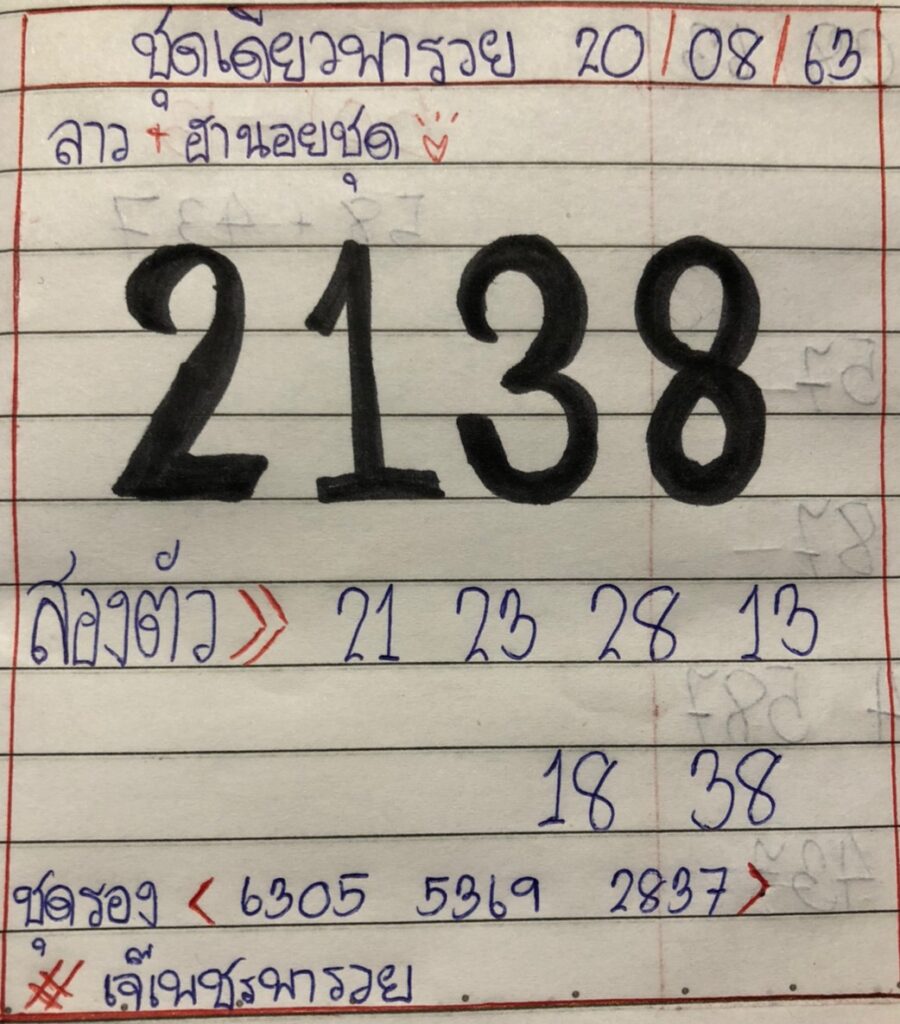 ชุดเดียวพารวย 20/08/63
ลาว + ฮานอยชุด
2138
สองตัว >> 21 23 28 13
18 38
ชุดรอง < 6305 5369 2837 >
# เจ๊เพชรพารวย